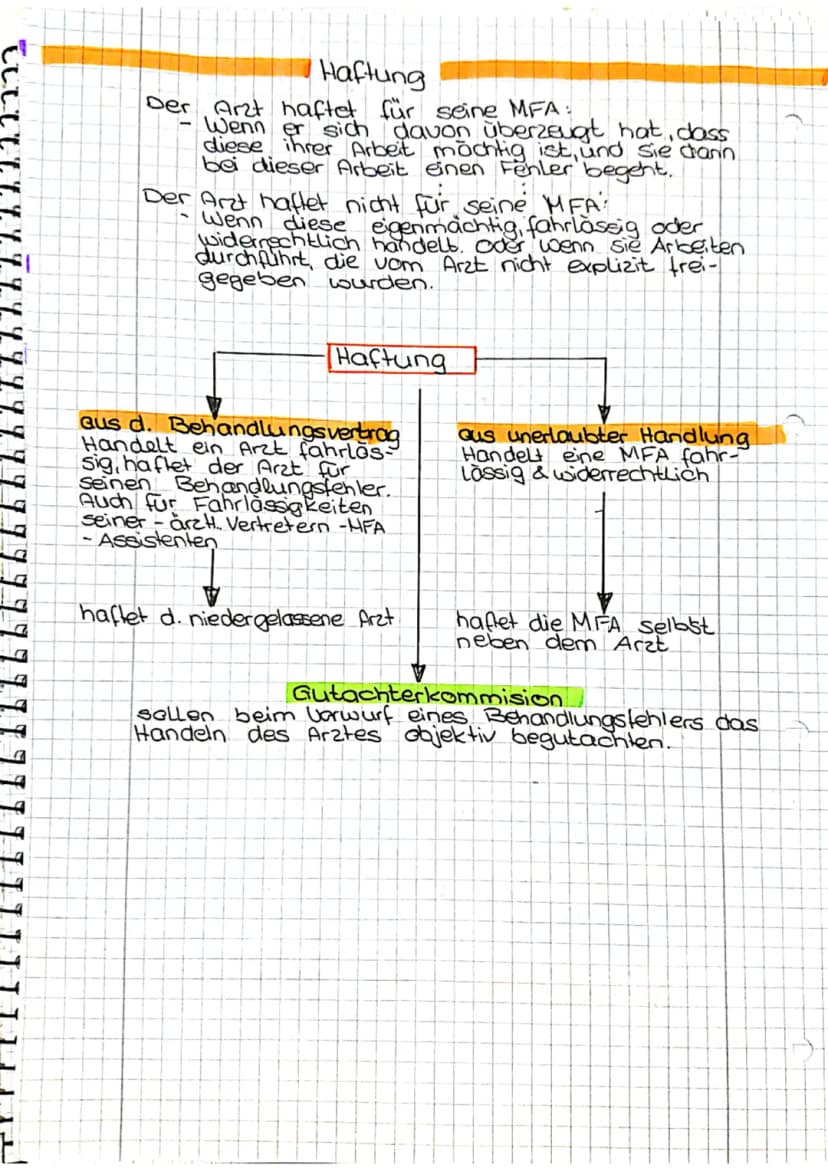 Haftung
Der Arzt haftet für seine MFA:
- Wenn er sich davon überzeugt hat, dass
diese ihrer Arbeit mächtig ist, und sie dann
bei dieser Arbeit einen Fehler begeht.
Der Arzt haftet nicht für seine MFA:
- Wenn diese eigenmächtig, fahrlässig oder
widerrechtlich handelt. Oder wenn sie Arbeiten
durchführt, die vom Arzt nicht explizit frei-
gegeben wurden.
Haftung
aus d. Behandlungsvertrag
Handelt ein Arzt fahrläs-
sig, haftet der Arzt für
seinen Behandlungsfehler.
Auch für Fahrlässigkeiten
seiner - ärztl. Vertretern - MFA
- Assistenten
haftet d. niedergelassene Arzt
aus unerlaubter Handlung
Handelt eine MFA fahr-
lässig & widerrechtlich
haftet die MFA selbst
neben dem Arzt
Gutachterkommision
sollen beim Vorwurf eines Behandlungsfehlers das
Handeln des Arztes objektiv begutachten.